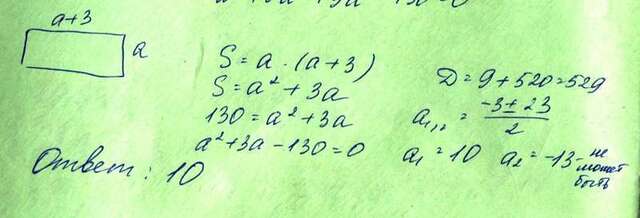 a+3
a
S = a · (a+3)
S = a² + 3a
130 = a² + 3a
a² + 3a - 130 = 0
D = 9 + 520 = 529
a₁,₂ = (-3 ± 23)/2
a₁ = 10 a₂ = -13 - не
может
быть
Ответ: 10